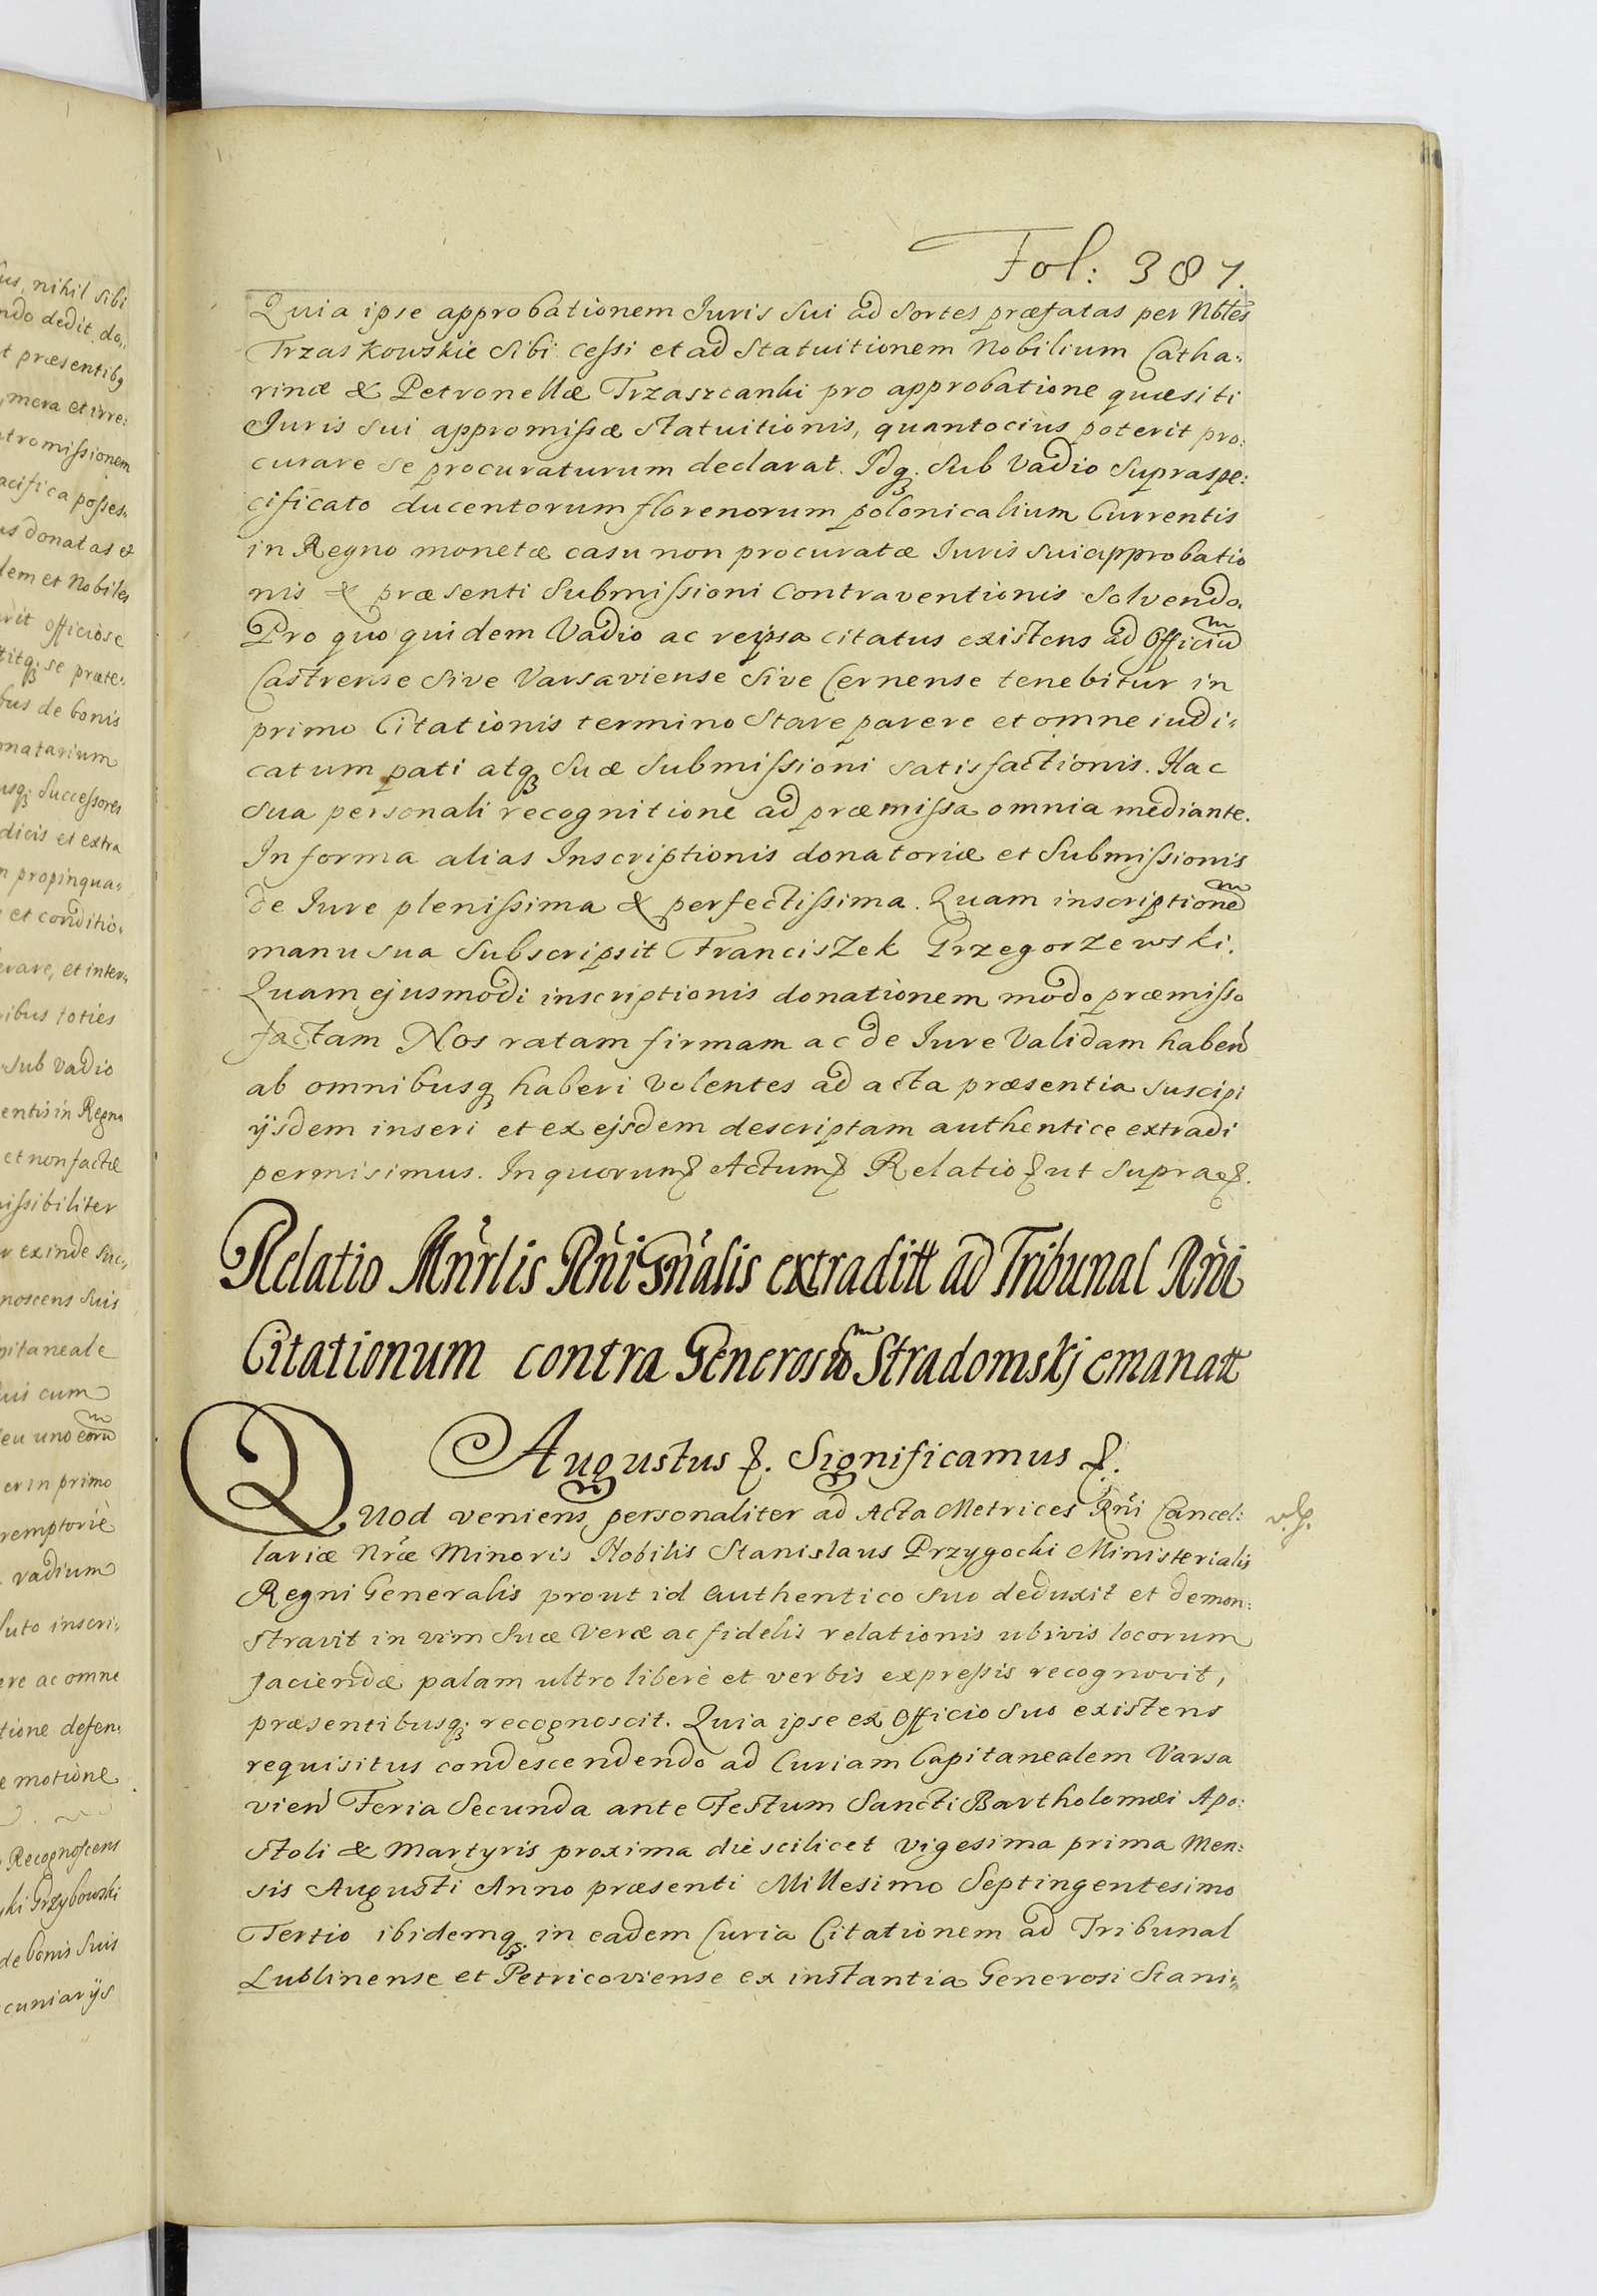 us, nihil sibi
ndo dedit, do,,
t præsentibq
mera et irre:
ntromissionem
acifica posses,,
us donatas et
dem et Nobiles
rit officiose
titq; se præte,,
bus de bonis
natarium
usq; Successores
dicis et extra
n propinqua,,
et conditio,
erare, et inter,,
ibus toties
Sub Vadio
entis in Regno
et non factæ
issibiliter
r exinde suc,,
noscens suis
pitaneale
uis cum
seu uno eorum
er in primo
remptorie
vadium
luto inscri,,
ere ac omne
tione defen,
e motione
Recognoscens
ki Grzybowski
de bonis suis
cuniarijs
Fol: 387.
Quia ipse approbationem Iuris sui ad sortes præfatas per Nbles
Trzaskowskie sibi cessi et ad Statuitionem Nobilium Catha:
rinæ & Petronellæ Trzaszcanki pro approbatione quæsiti
Iuris sui appromissæ statuitionis, quantocius poterit pro:
curare se procuraturum declarat. Idq; sub Vadio supraspe:
cificato ducentorum florenorum polonicalium Currentis
in Regno monetæ casu non procuratæ Iuris sui approbatio
nis & præsenti Submissioni contraventionis solvendo.
Pro quo quidem Vadio ac reipsa citatus existens ad Officium
Castrense sive Varsaviense sive Cernense tenebitur in
primo Citationis termino stare parere et omne iudi,
catum pati atq; suæ submissioni satisfactionis. Hac
sua personali recognitione ad præmissa omnia mediante.
In forma alias Inscriptionis donatoriæ et Submissionis
de Iure plenissima & perfectissima. Quam inscriptionem
manu sua subscripsit Franciszek Grzegorzewski.
Quam ejusmodi inscriptionis donationem modo præmisso
factam Nos ratam firmam ac de Iure Validam haben
ab omnibusq; haberi volentes ad acta præsentia suscipi
ijsdem inseri et ex ejsdem descriptam authentice extradi
permisimus. In quorum & Actum & Relatio & ut supra &.
Relatio Mnrlis Rni Gnalis extraditt ad Tribunal Rni
Citationum contra Generosum Stradomskj emanatt
Augustus &. Significamus &.
Quod veniens personaliter ad Acta Metrices Rni Cancel:
lariæ Nræ Minoris Nobilis Stanislaus Przygocki Ministerialis
Regni Generalis prout id authentico suo deduxit et demon:
stravit in vim suæ veræ ac fidelis relationis ubivis locorum
faciendæ palam ultro liberè et verbis expressis recognovit,
præsentibusq; recognoscit. Quia ipse ex Officio suo existens
requisitus condescendendo ad Curiam Capitanealem Varsa
vien Feria Secunda ante Festum Sancti Bartholomæi Apo:
stoli & Martyris proxima die scilicet vigesima prima Men:
sis Augusti Anno præsenti Millesimo Septingentesimo
Tertio ibidemq; in eadem Curia Citationem ad Tribunal
Lublinense et Petricoviense ex instantia Generosi Stani,,